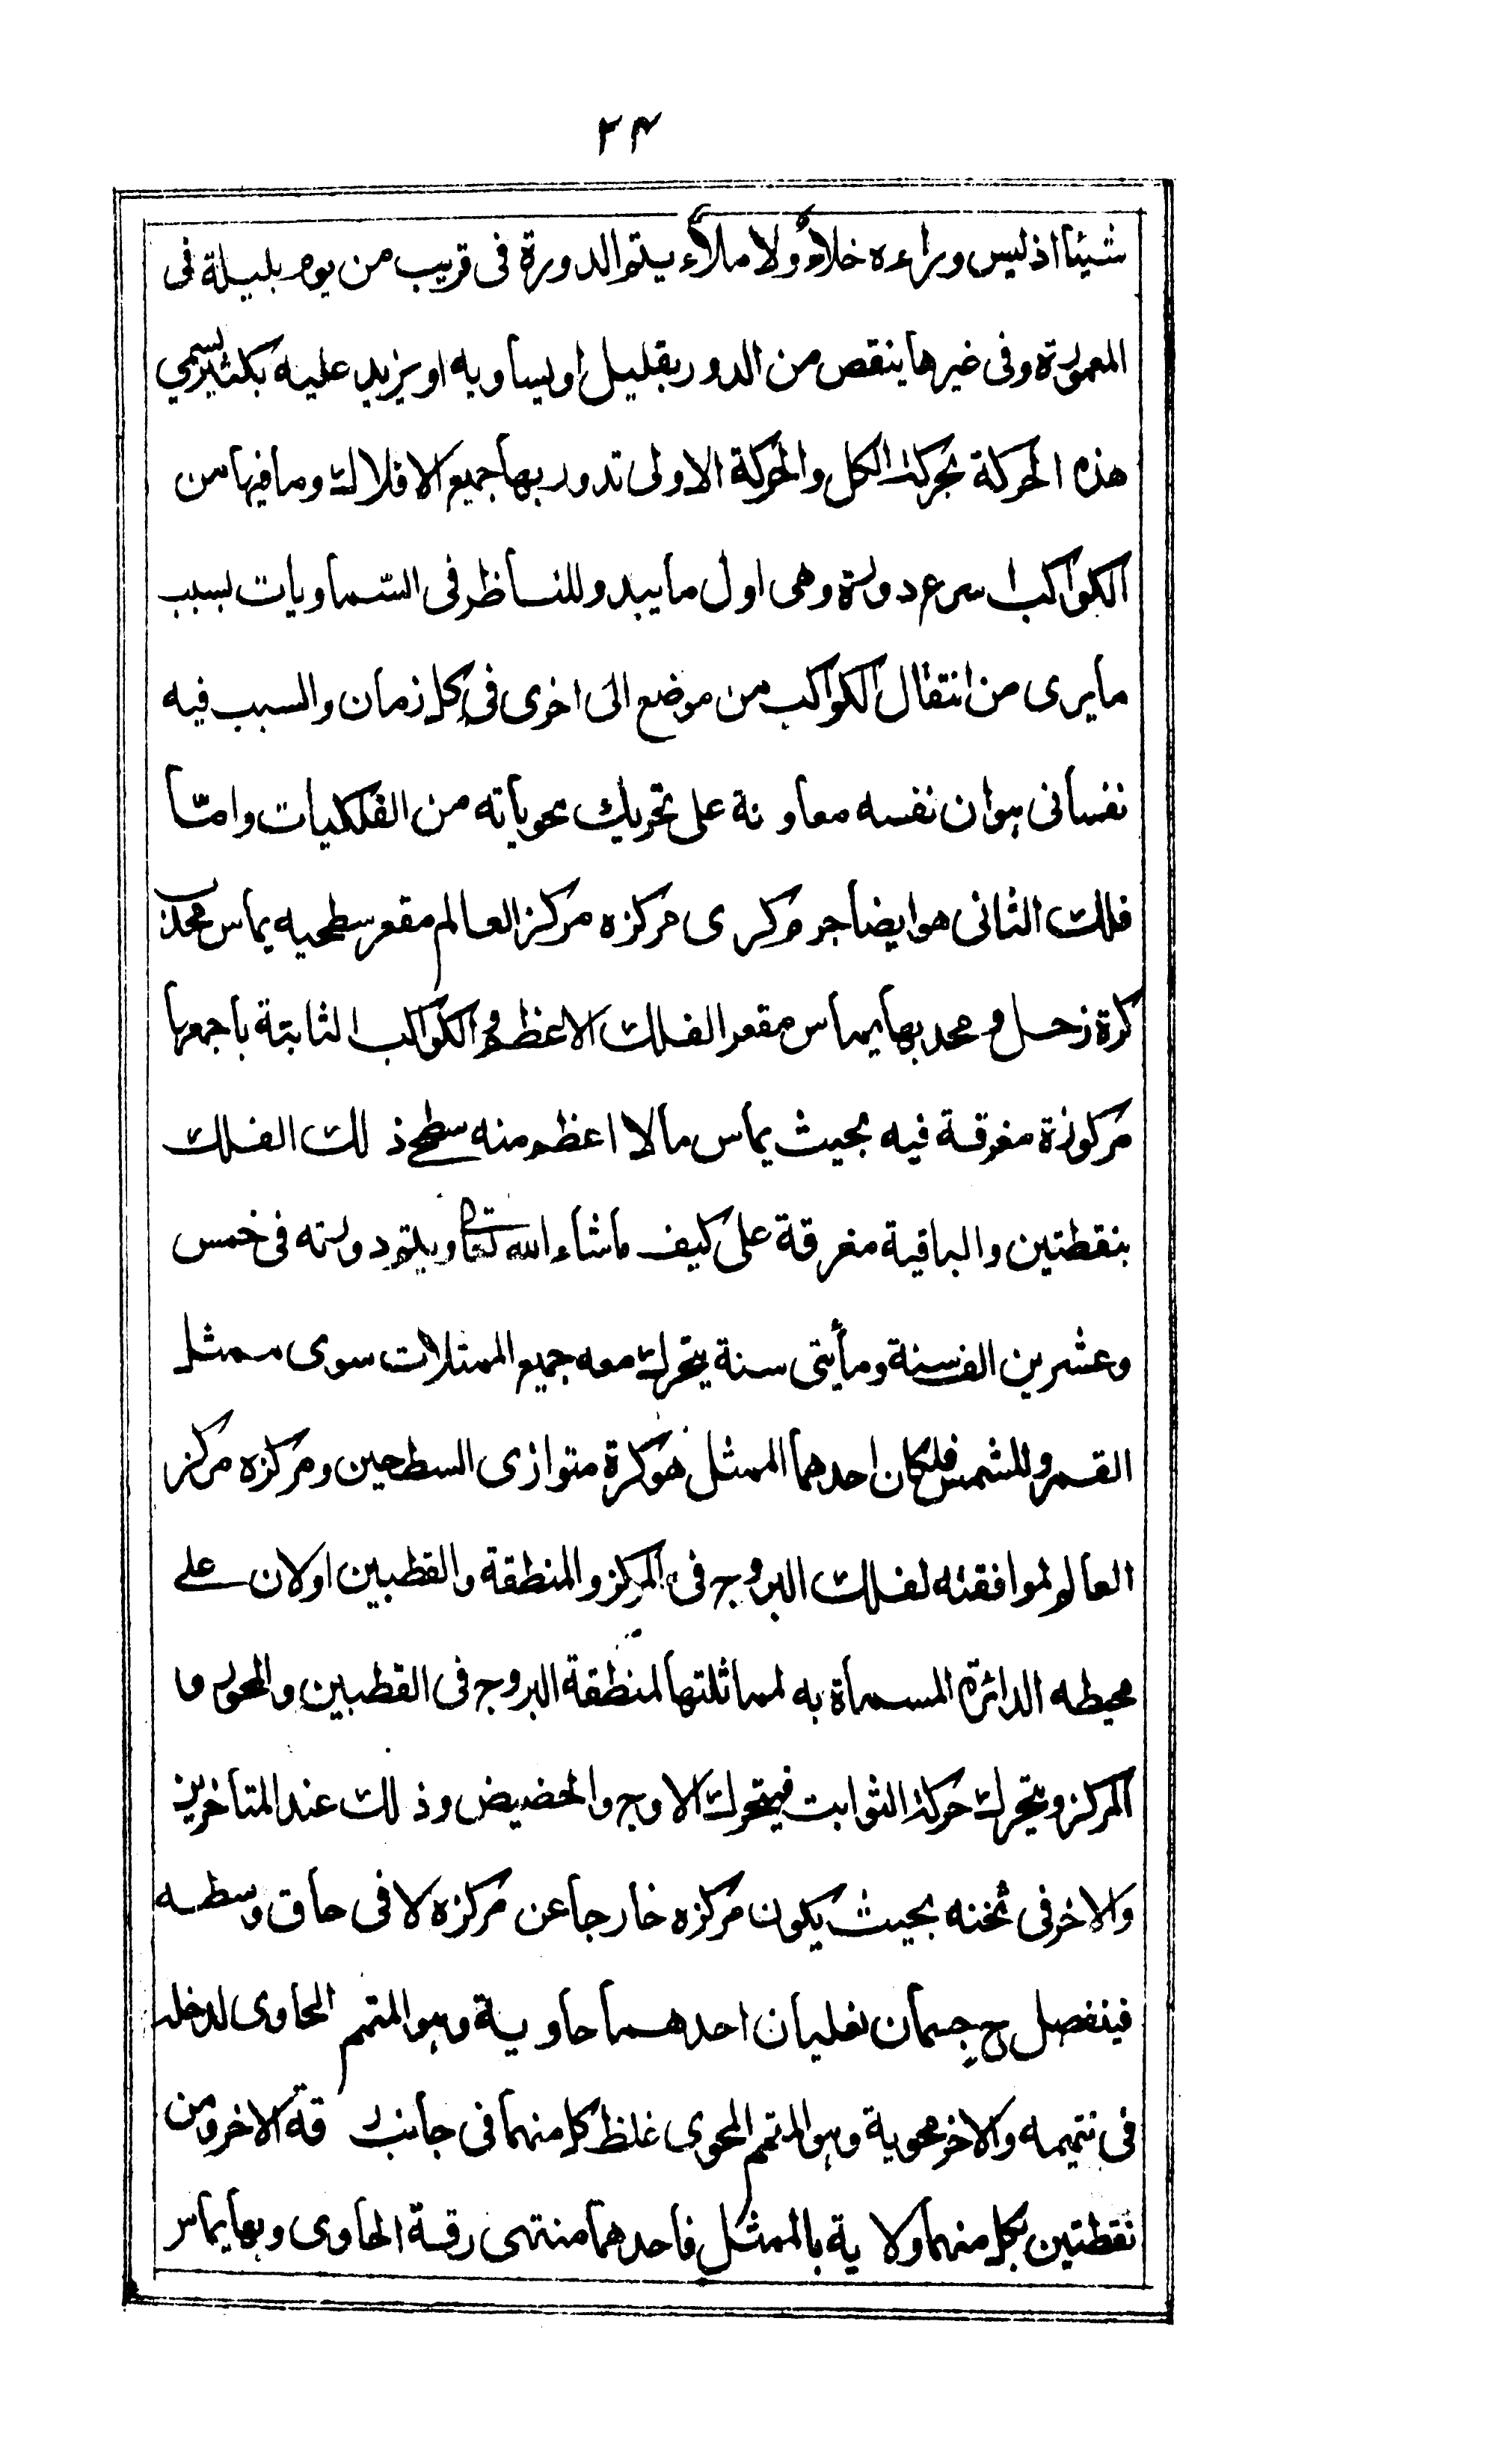 ۲۴
شيئا اذ ليس وراءه خلاء ولا ملاء يتم الدورة فى قريب من يوم بليلة فى
المعمورة وفى غيرها ينقص من الدور بقليل او يساويه او يزيد عليه بكثير يسمى
هذه الحركة بحركة الكل والحركة الاولى تدور بها جميع الافلاك وما فيها من
الكواكب اسرع دورة وهى اول ما يبدو للناظر فى السماويات بسبب
ما يرى من انتقال الكواكب من موضع الى اخرى فى كل زمان والسبب فيه
نفسانى هو ان نفسه معاونة على تحريك محوياته من الفلكيات وامّا
فلك الثانى هو ايضا جرم كرى مركزه مركز العالم مقعر سطحيه يماس محدب
كرة زحل ومحدبها يماس مقعر الفلك الاعظم والكواكب الثابتة باجمعها
مركوزة مغرقة فيه بحيث يماس مالا اعظم منه سطحى ذلك الفلك
بنقطتين والباقية مغرقة على كيف ماشاء الله تعالى ويتم دورته فى خمس
وعشرين الف سنة ومأيتى سنة يتحرك معه جميع الممثلات سوى ممثل
القمر وللشمس فلكان احدهما الممثل هو كرة متوازى السطحين ومركزه مركز
العالم لموافقته لفلك البروج فى المركز والمنطقة والقطبين اولان على
محيطه الدائرة المسماة به لمماثلتها لمنطقة البروج فى القطبين والمحور و
المركز ويتحرك حركة الثوابت فيتحرك الاوج والحضيض وذلك عند المتأخرين
والاخر فى ثخنه بحيث يكون مركزه خارجا عن مركزه لا فى حاق وسطه
فينفصل ح جسمان نعليان احدهما حاوية وهو المتمم الحاوى لدخله
فى تتميمه والاخر محوية وهو المتمم المحوى غلظ كل منهما فى جانب رقة الاخر ومن
نقطتين بكل منهما ولاية بالممثل فاحدهما منتهى رقة الحاوى وبها يماس